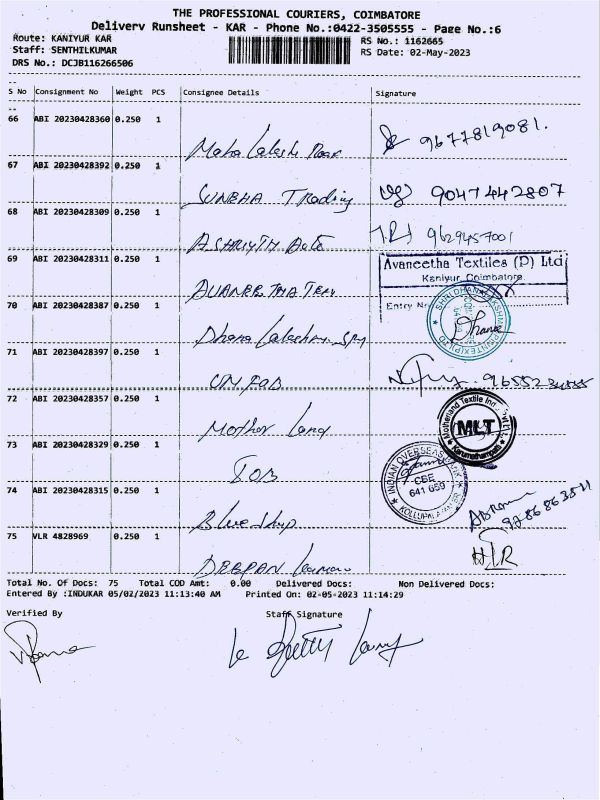 THE PROFESSIONAL COURIERS, COIMBATORE
Delivery Runsheet - KAR - Phone No.:0422-3505555 - Page No.:6
Route: KANIYUR KAR
RS No.: 1162665
Staff: SENTHILKUMAR
RS Date: 02-May-2023
DRS No.: DCJB116266506
S No Consignment No Weight PCS Consignee Details Signature
66 ABI 20230428360 0.250 1
Maha Lakshmi 9677819081.
67 ABI 20230428392 0.250 1
SUNBHA Trading 9047442807
68 ABI 20230428309 0.250 1
Auto 9629457001
69 ABI 20230428311 0.250 1
Avaneetha Textiles (P) Ltd
Kaniyur, Coimbatore
Entry No
70 ABI 20230428387 0.250 1
Dhana
71 ABI 20230428397 0.250 1
72 ABI 20230428357 0.250 1
Mother Land
MLT
73 ABI 20230428329 0.250 1
IOB
INDIAN OVERSEAS BANK
CBE
641 659
74 ABI 20230428315 0.250 1
Blue Ship
75 VLR 4828969 0.250 1
HLR
Total No. Of Docs: 75 Total COD Amt: 0.00 Delivered Docs: Non Delivered Docs:
Entered By :INDUKAR 05/02/2023 11:13:40 AM Printed On: 02-05-2023 11:14:29
Verified By Staff Signature